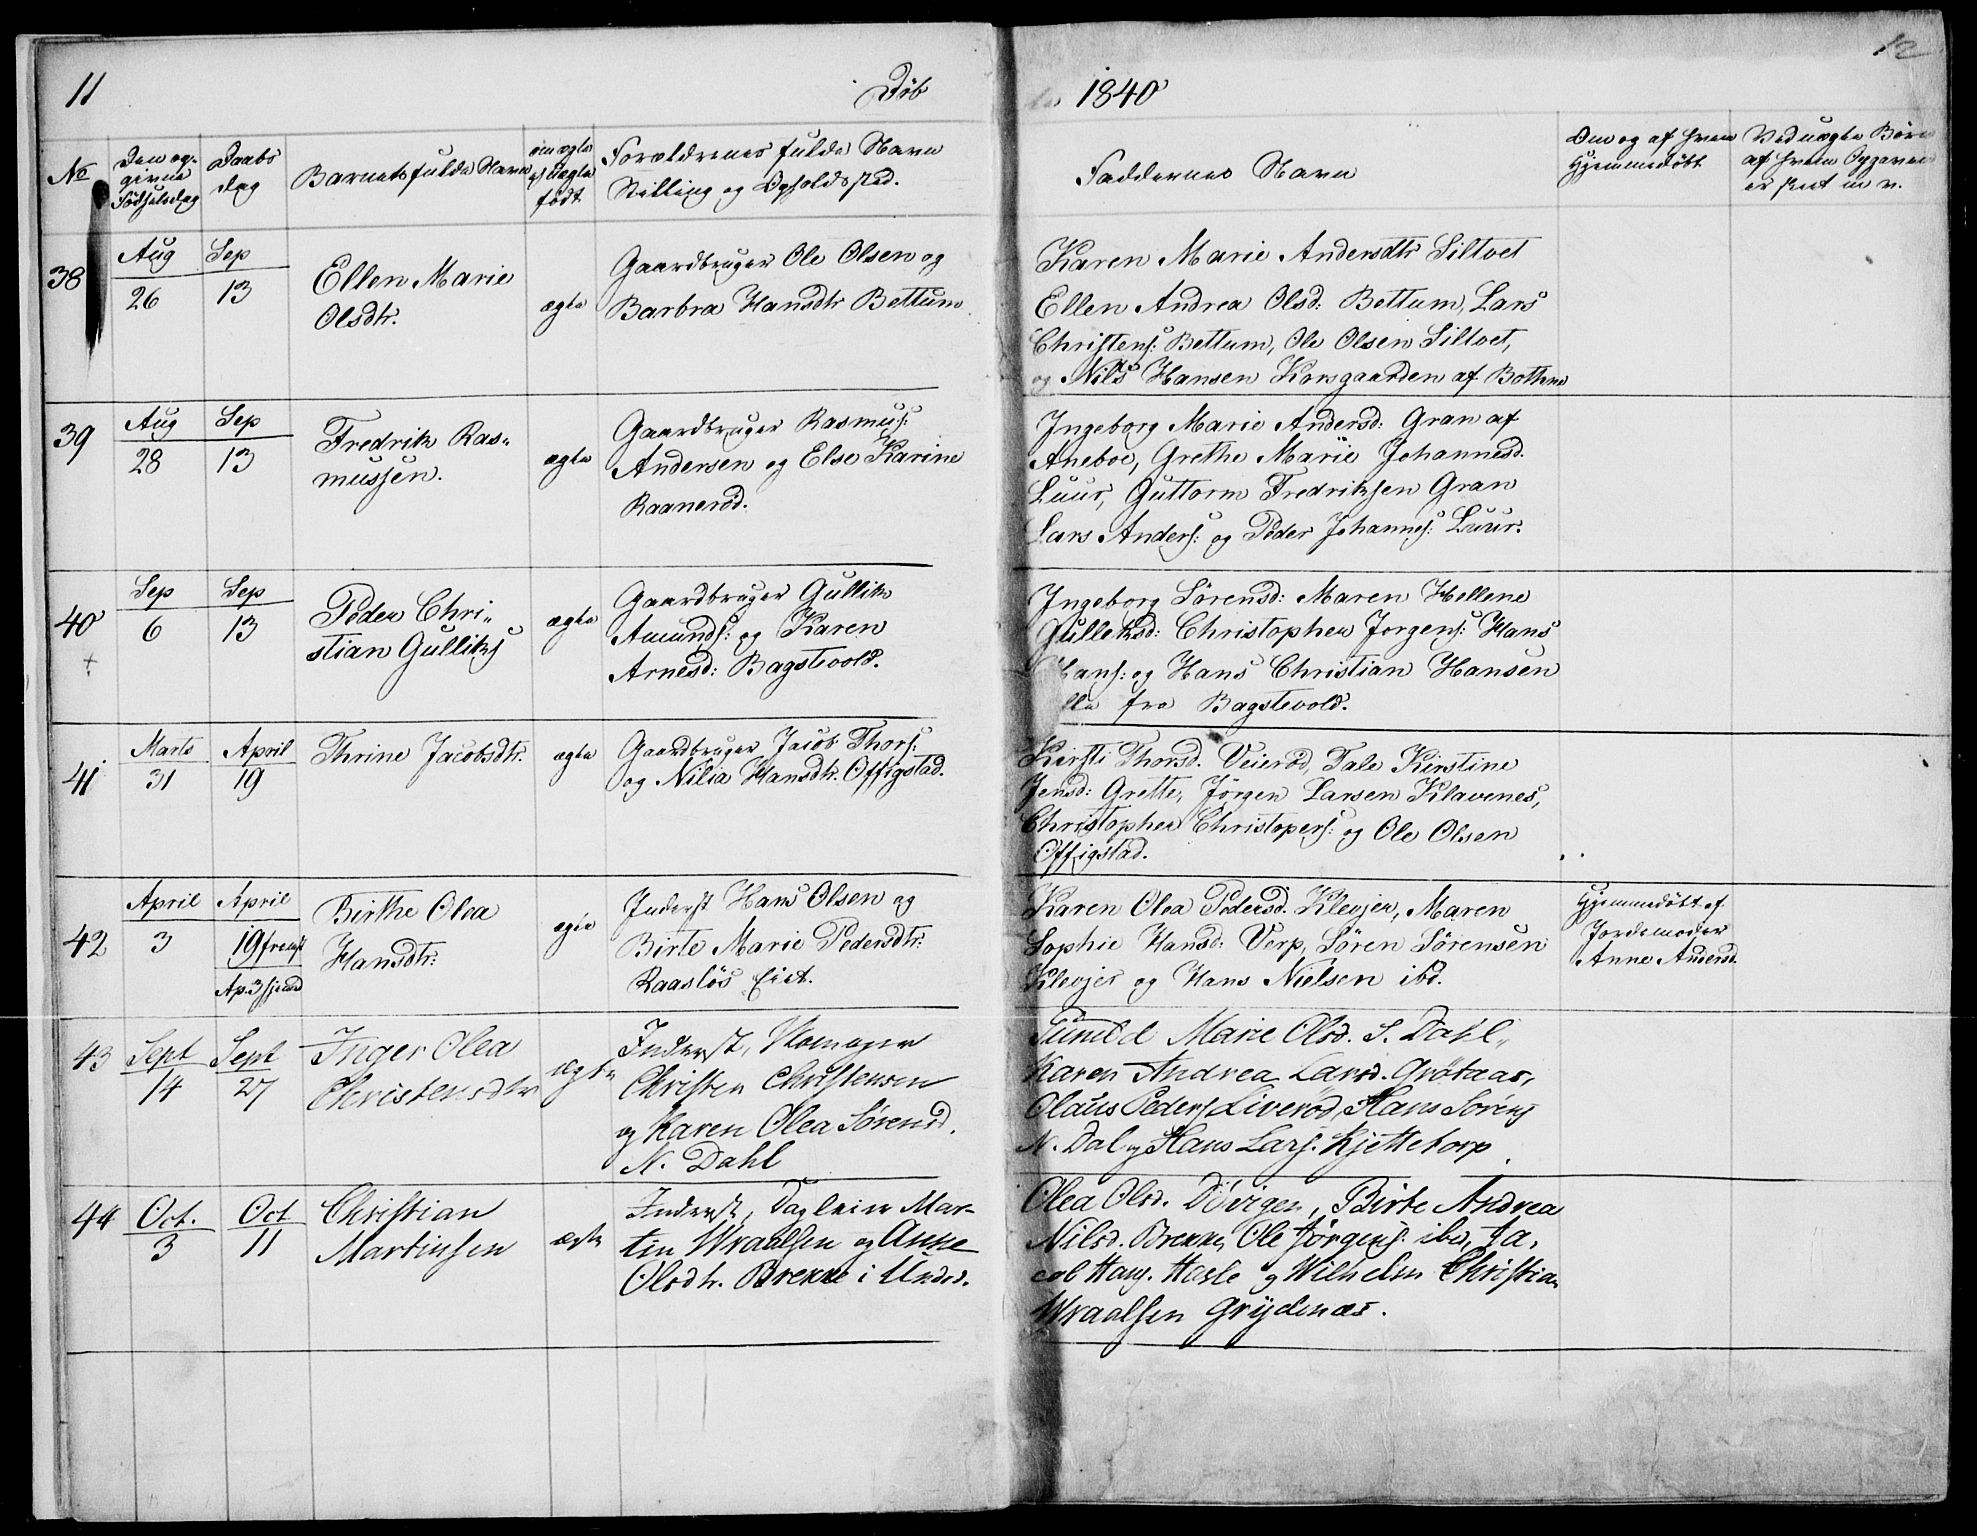 11
Døb
1840
12
No
Den op-
givne
Fødselsdag
Daabs
dag
Barnets fulde Navn
om ægte
el uægte
født
Forældrenes fulde Navn
Stilling og Opholdssted.
Faddernes Navn
Om og af hvem
Hjemmedøbt
Ved uægte Børn
af hvem Opgaven
er skeet m v.
38
Aug
26
Sep
13
Ellen Marie
Olsdtr.
ægte
Gaardbruger Ole Olsen og
Barbra Hansdtr Bettum
Karen Marie Andersdtr Siltvet
Ellen Andrea Olsd: Bettum, Lars
Christens: Bettum, Ole Olsen Siltvet,
og Nils Hansen Korsgaarden af Bothne
39
Aug
28
Sep
13
Fredrik Ras-
mussen.
ægte
Gaardbruger Rasmus:
Andersen og Else Karine
Raanerød.
Ingeborg Marie Andersd: Gran af
Aneboe, Grethe Marie Johannesd.
Luur, Guttorm Fredriksen Gran
Lars Anders: og Peder Johannes: Luur.
40
+
Sep
6
Sep
13
Peder Chri-
stian Gulliks
ægte
Gaardbruger Gullik
Amunds: og Karen
Arnesd: Bagstevold.
Ingeborg Sørensd: Maren Hellene
Gulleksd: Christopher Jorgens: Hans
Hans: og Hans Christian Hansen
fra Bagstevold.
41
Marts
31
April
19
Thrine Jacobsdtr.
ægte
Gaardbruger Jacob Thors:
og Nilia Hansdtr. Offigstad.
Kirsti Thorsd. Veierød, Tale Kirstine
Jensd: Grette, Jørgen Larsen Klavenes,
Christopher Christopers: og Ole Olsen
Offigstad.
42
April
3
April
19 fremst
Ap. 3 hjemd
Birthe Olea
Hansdtr:
ægte
Inderst Hans Olsen og
Birte Marie Pedersdtr:
Raasløs Eiet.
Karen Olea Pedersd. Klevjer, Maren
Sophie Hansd: Verp, Søren Sørensen
Klevjer og Hans Nielsen ibd.
Hjemmedøbt af
Jordemoder
Anne Andersd.
43
Sept
14
Sept
27
Inger Olea
Christensdtr
ægte
Inderst, Skomager
Christen Christensen
og Karen Olea Sørensd.
N. Dahl
Gunild Marie Olsd. S. Dahl,
Karen Andrea Larsd. Grøtaas,
Olaus Peders Liverød, Hans Sørens
N. Dal og Hans Lars. Kjettetorp
44
Oct.
3
Oct
11
Christian
Martinsen
ægte
Inderst, Dagleier Mar-
tin Wraalsen og Anne
Olsdtr. Brekke i Undr.
Olea Olsd. Døvigen, Birte Andrea
Nilsd. Brekke, Ole Jørgens. ibd, Ja-
cob Hans. Hasle og Wilhelm Christian
Wraalsen Grydenæs.